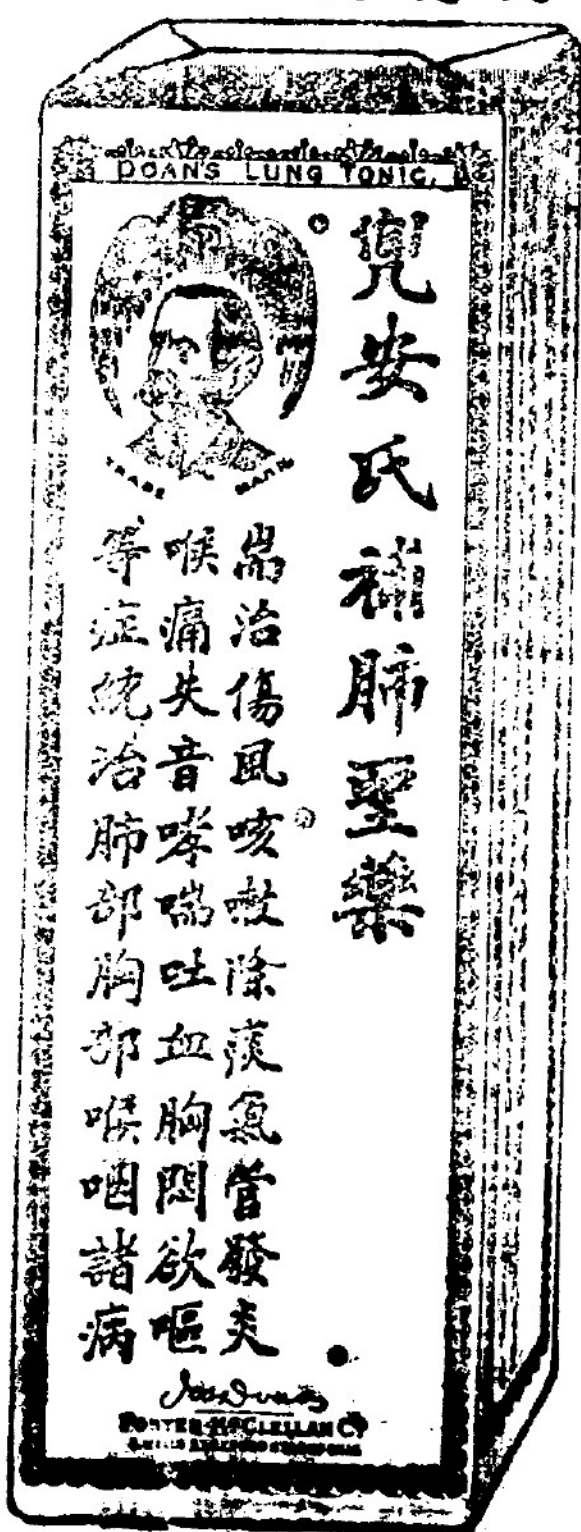 DOAN'S LUNG TONIC,
TRADE MARK
兜安氏補肺聖藥
耑治傷風咳嗽除痰氣管發炎
喉痛失音哮喘吐血胸悶欲嘔
等症統治肺部胸部喉咽諸病
FOSTER-McCLELLAN Co